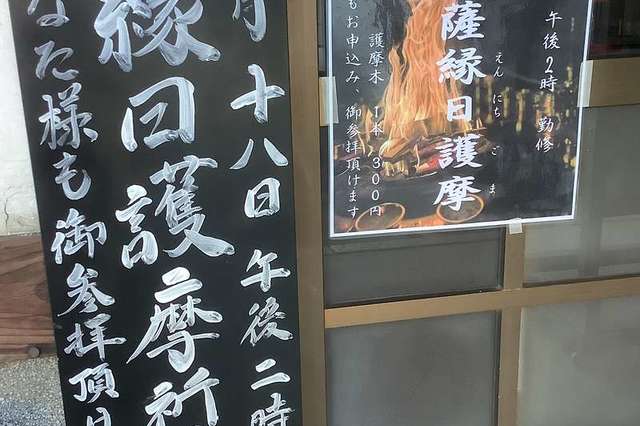 月十八日 午後二時
縁日護摩祈
なた様も御参拝頂け
午後2時 勤修
薩縁日護摩
えんにち ごま
護摩木 1本 300円
もお申込み、御参拝頂けます